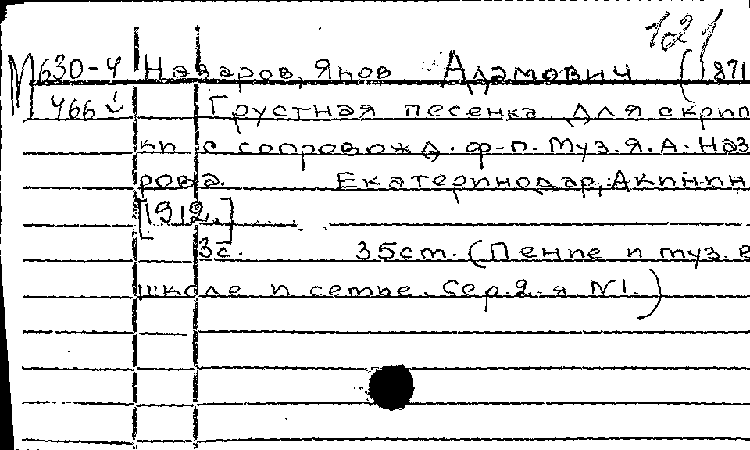 121
М 630-4 Назаров, Яков Адамович (1871
466 Грустная песенка. Для скрип
ки с сопровожд. ф-п. Муз. Я. А. Наз
рова. Екатеринодар,
[1912.]
3с. 35см. (Пение и муз. в
школе и семье. Сер. 2-я №1.)